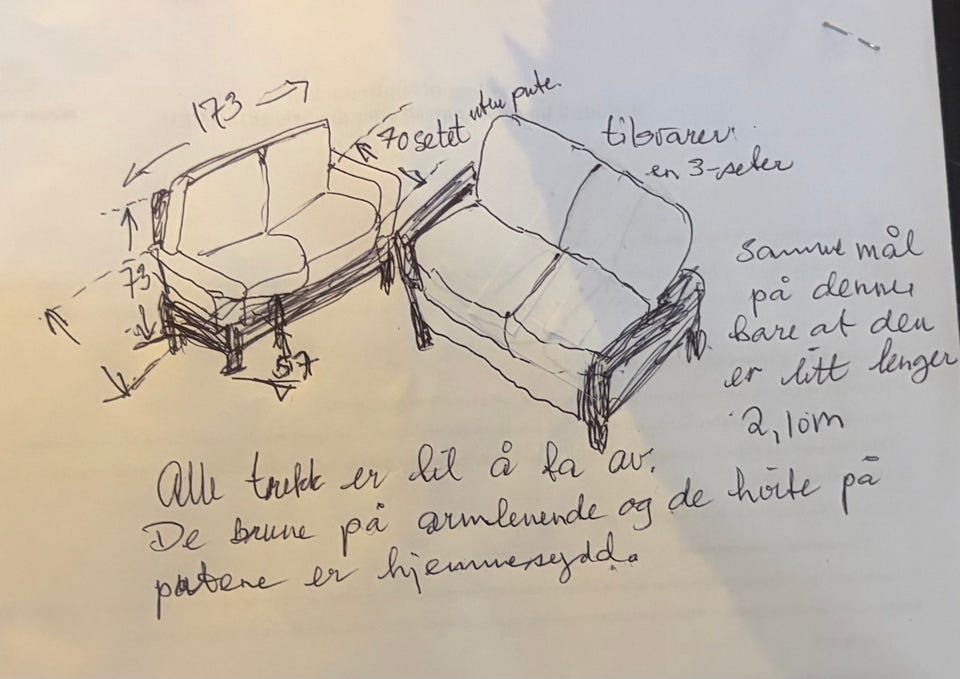 173
70 setet uten pute.
tilsvarer
en 3-seter
73
57
Samme mål
på denne
bare at den
er litt lenger
2,10m
Alle trekk er til å ta av.
De brune på armlenende og de hvite på
putene er hjemmesydd.